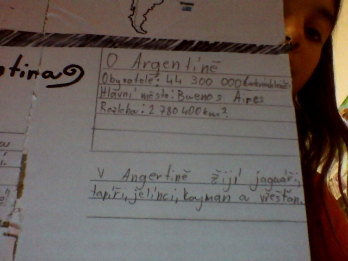 ntina
O Argentině
Obyvatelé: 44 300 000
Hlavní město: Buenos Aires
Rozloha: 2 780 400 km²
V Angertině žijí jaguáři,
tapíři, jelínci, kayman a vřešťan.